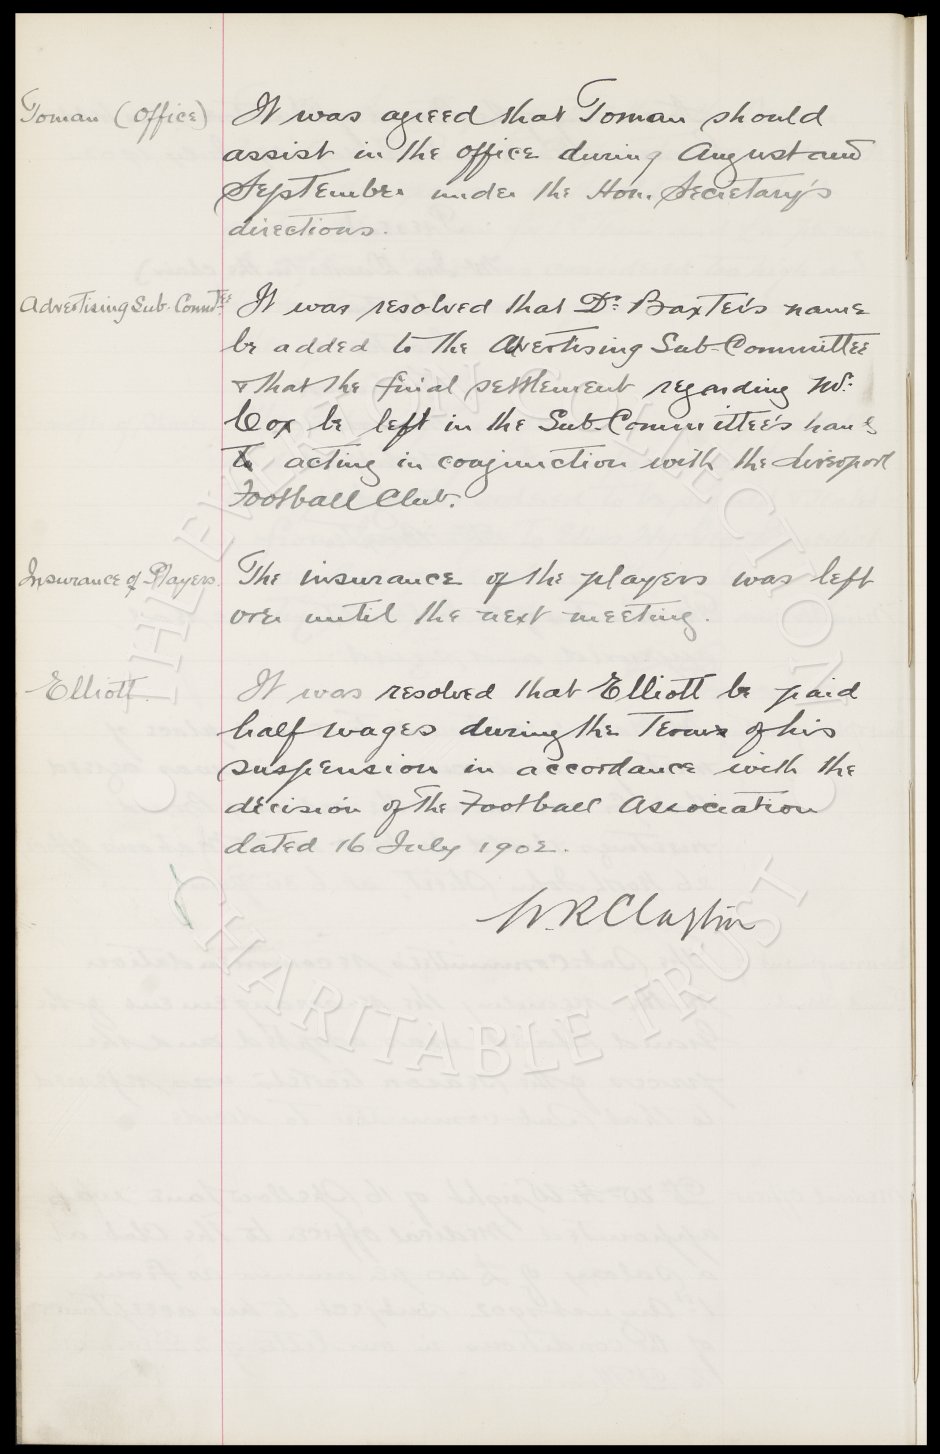 Toman (Office)
It was agreed that Toman should
assist in the office during August and
September under the Hon. Secretary's
directions.
Advertising Sub-Commtee
It was resolved that Dr. Baxter's name
be added to the Advertising Sub-Committee
& that the final settlement regarding Mr.
Cox be left in the Sub-Committee's hands
acting in conjunction with the Liverpool
Football Club.
Insurance of Players.
The insurance of the players was left
over until the next meeting.
Elliott.
It was resolved that Elliott be paid
half wages during the term of his
suspension in accordance with the
decision of the Football Association
dated 16 July 1902.
W. R. Clayton
THE EVERTON COLLECTION
CHARITABLE TRUST